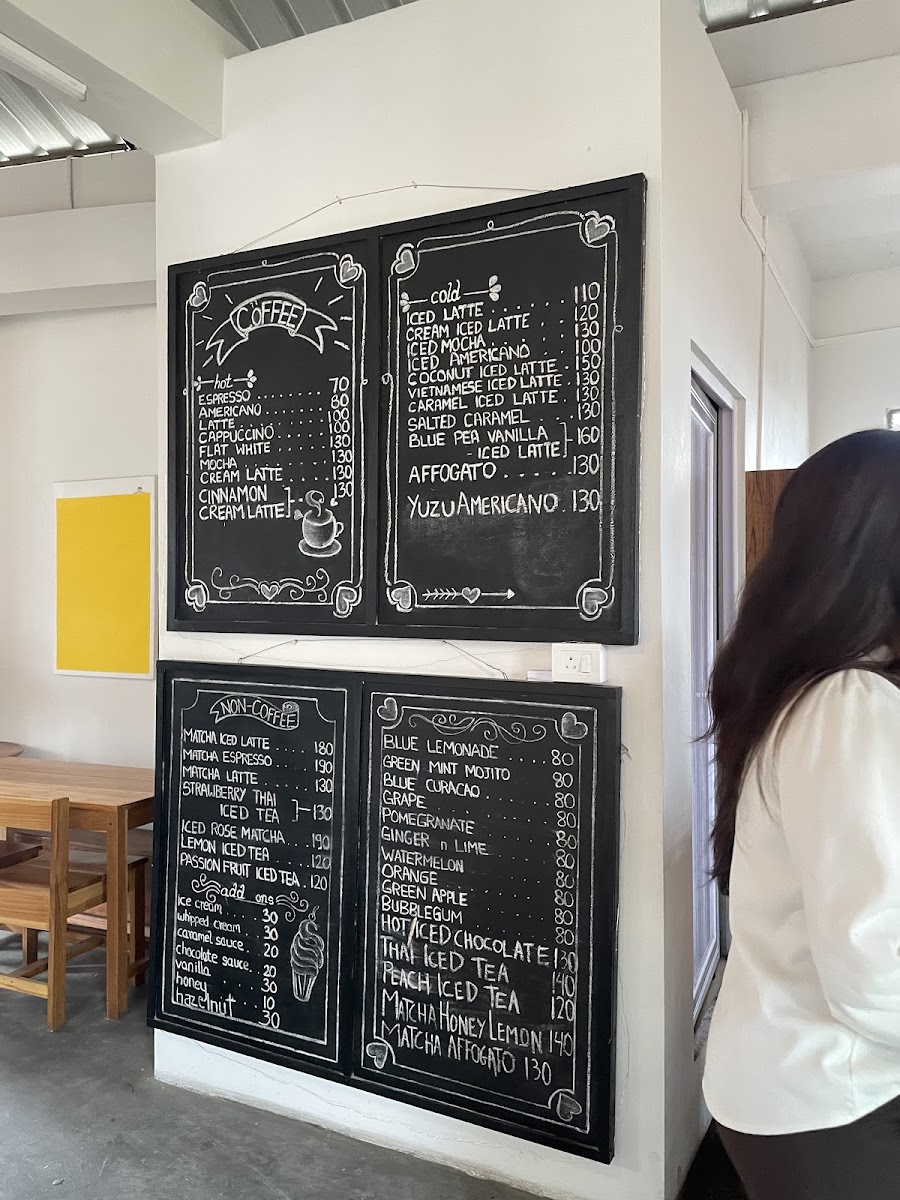 COFFEE
hot
ESPRESSO ........ 70
AMERICANO ...... 80
LATTE ........ 100
CAPPUCCINO ..... 100
FLAT WHITE ..... 130
MOCHA ........ 130
CREAM LATTE .... 130
CINNAMON
CREAM LATTE ] .. 130
cold
ICED LATTE ...... 110
CREAM ICED LATTE . . . 120
ICED MOCHA ...... 130
ICED AMERICANO . . . . 100
COCONUT ICED LATTE . 150
VIETNAMESE ICED LATTE . 130
CARAMEL ICED LATTE . 130
SALTED CARAMEL . . . 130
BLUE PEA VANILLA
- ICED LATTE ] 160
AFFOGATO ..... 130
YUZU AMERICANO . 130
NON-COFFEE
MATCHA ICED LATTE .... 180
MATCHA ESPRESSO .... 190
MATCHA LATTE ..... 130
STRAWBERRY THAI
ICED TEA ] 130
ICED ROSE MATCHA ... 190
LEMON ICED TEA .... 120
PASSION FRUIT ICED TEA . 120
add ons
ice cream .... 30
whipped cream ... 30
caramel sauce . . 20
chocolate sauce. . 20
vanilla ..... 30
honey ..... 10
hazelnut ... 30
BLUE LEMONADE ...... 80
GREEN MINT MOJITO 80
BLUE CURACAO ...... 80
GRAPE ........ 80
POMEGRANATE ...... 80
GINGER n LIME ..... 80
WATERMELON ...... 80
ORANGE ........ 80
GREEN APPLE ...... 80
BUBBLEGUM ...... 80
HOT/ICED CHOCOLATE 130
THAI ICED TEA 140
PEACH ICED TEA 120
MATCHA HONEY LEMON 140
MATCHA AFFOGATO 130